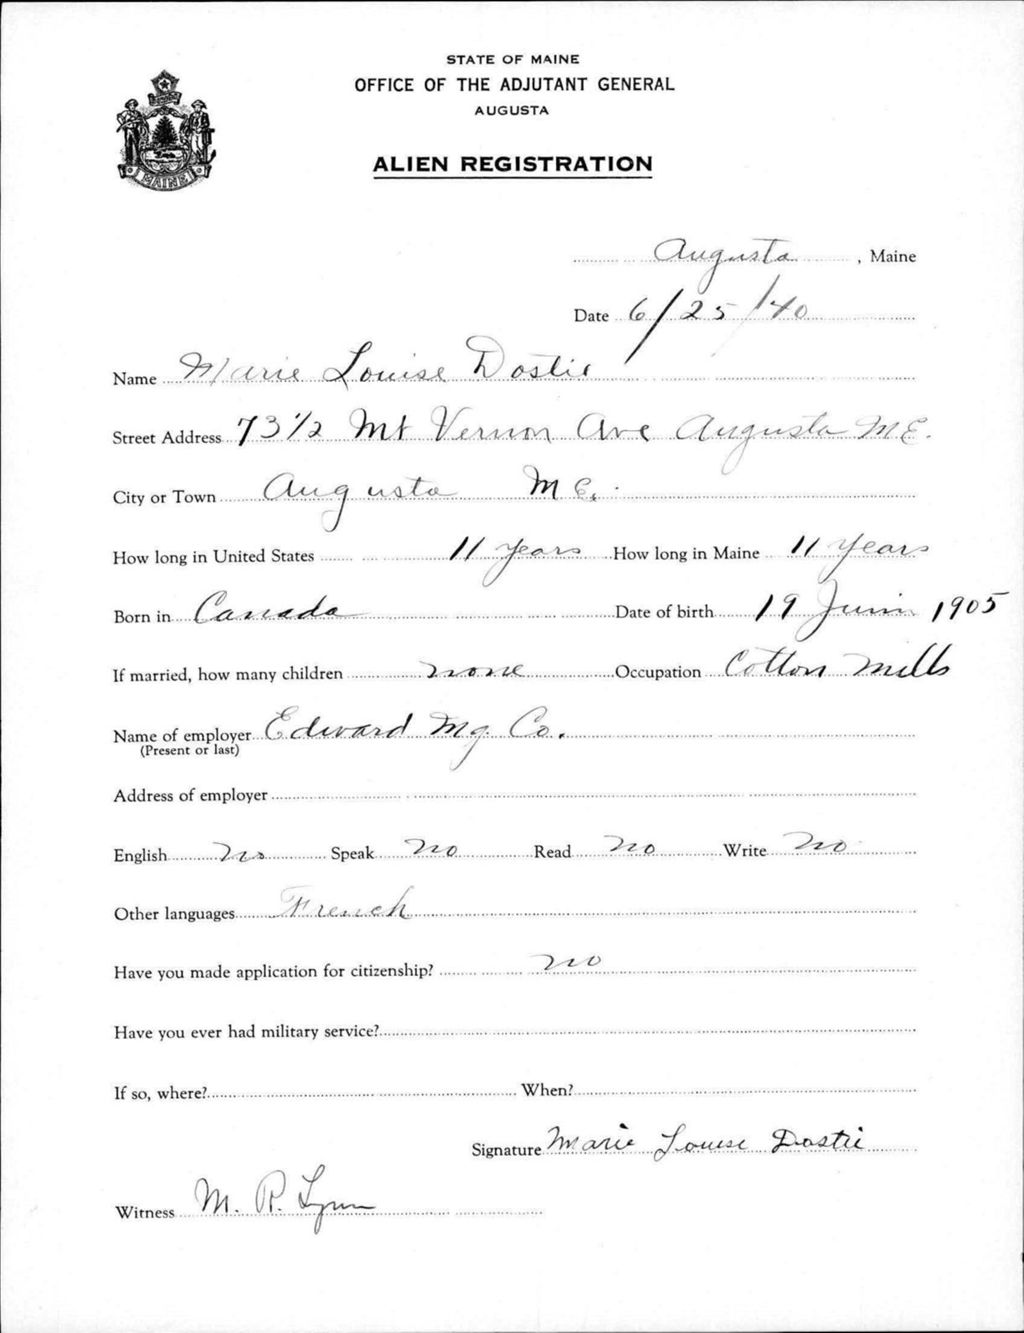 STATE OF MAINE
OFFICE OF THE ADJUTANT GENERAL
AUGUSTA
ALIEN REGISTRATION
MAINE
Augusta, Maine
Date 6/25/40
Name Marie Louise Dostie
Street Address 73 1/2 Mt Vernon Ave Augusta ME.
City or Town Augusta ME.
How long in United States 11 years How long in Maine 11 years
Born in Canada Date of birth 19 Juin 1905
If married, how many children none Occupation Cotton Mills
Name of employer Edward Mg. Co.
(Present or last)
Address of employer
English no Speak no Read no Write no
Other languages French
Have you made application for citizenship? no
Have you ever had military service?
If so, where? When?
Signature Marie Louise Dostie
Witness M. R. Lynn